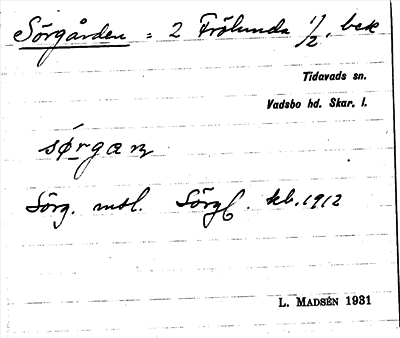 Sörgården = 2 Frölunda 1/2, bek
Tidavads sn.
Vadsbo hd. Skar. l.
Sörg. msl. Sörg. kb. 1912
L. MADSÉN 1931